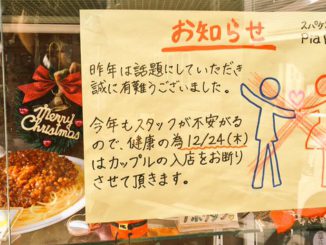 お知らせ
昨年は話題にしていただき
誠に有難うございました。
今年もスタッフが不安がる
ので、健康の為12/24(木)
はカップルの入店をお断り
させて頂きます。
Merry
Christmas
スパゲ
Pia